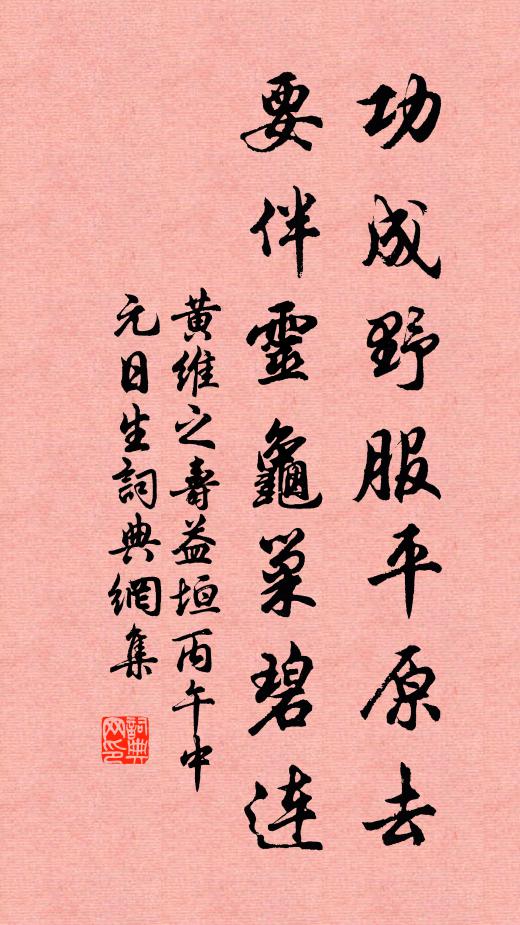 功成野服平原去
要伴靈龜巢碧連
黃維之壽益垣丙午中
元日生詞典網集
詞典網印